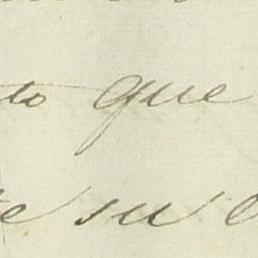 to que
e su